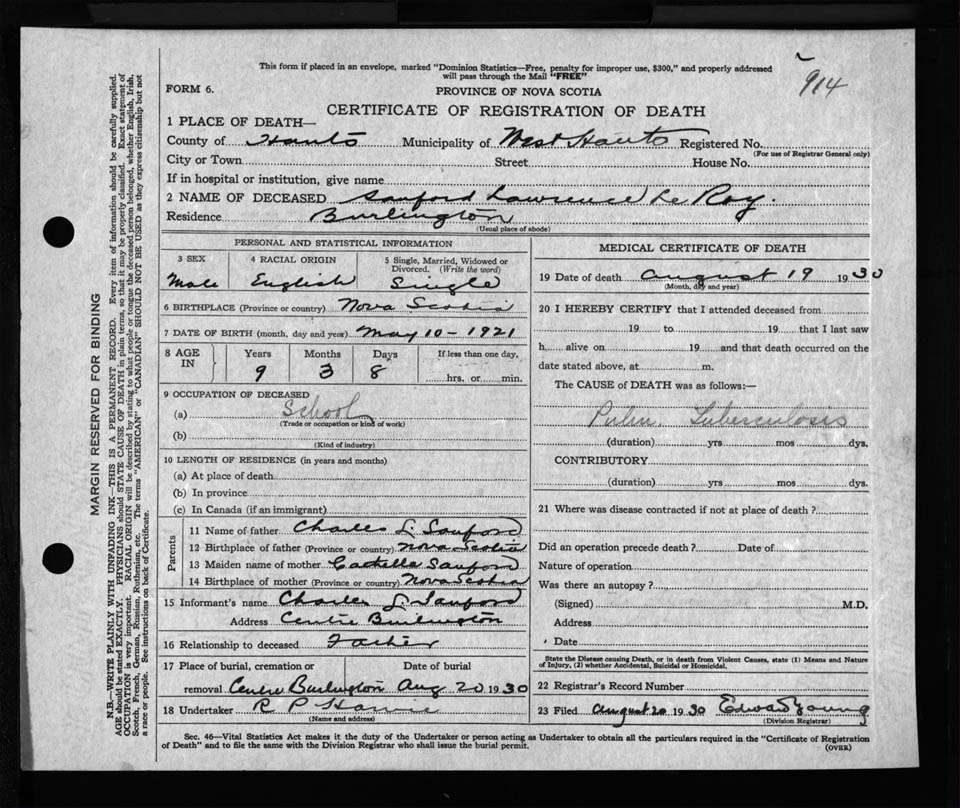 914
This form if placed in an envelope, marked "Dominion Statistics—Free, penalty for improper use, $300," and properly addressed
will pass through the Mail "FREE"
FORM 6. PROVINCE OF NOVA SCOTIA
CERTIFICATE OF REGISTRATION OF DEATH
1 PLACE OF DEATH—
County of Hants Municipality of West Hants Registered No.
(For use of Registrar General only)
City or Town Street House No.
If in hospital or institution, give name
2 NAME OF DECEASED Sanford Lawrence Le Roy.
Residence Burlington
(Usual place of abode)
PERSONAL AND STATISTICAL INFORMATION
3 SEX 4 RACIAL ORIGIN 5 Single, Married, Widowed or
Divorced. (Write the word)
Male English Single
6 BIRTHPLACE (Province or country) Nova Scotia
7 DATE OF BIRTH (month, day and year) May 10 - 1921
8 AGE IN Years Months Days If less than one day,
9 3 8 hrs. or min.
9 OCCUPATION OF DECEASED
(a) School
(Trade or occupation or kind of work)
(b)
(Kind of industry)
10 LENGTH OF RESIDENCE (in years and months)
(a) At place of death
(b) In province
(c) In Canada (if an immigrant)
Parents
11 Name of father Charles L. Sanford
12 Birthplace of father (Province or country) Nova Scotia
13 Maiden name of mother Sanford
14 Birthplace of mother (Province or country) Nova Scotia
15 Informant's name Charles L. Sanford
Address Centre Burlington
16 Relationship to deceased Father
17 Place of burial, cremation or Date of burial
removal Centre Burlington Aug 20 1930
18 Undertaker R P
(Name and address)
MEDICAL CERTIFICATE OF DEATH
19 Date of death August 19 1930
(Month, day and year)
20 I HEREBY CERTIFY that I attended deceased from
19 to 19 that I last saw
h alive on 19 and that death occurred on the
date stated above, at m.
The CAUSE of DEATH was as follows:—
Pulm. Tuberculosis
(duration) yrs mos dys.
CONTRIBUTORY
(duration) yrs mos dys.
21 Where was disease contracted if not at place of death?
Did an operation precede death? Date of
Nature of operation
Was there an autopsy?
(Signed) M.D.
Address
Date
State the Disease causing Death, or in death from Violent Causes, state (1) Means and Nature
of Injury, (2) whether Accidental, Suicidal or Homicidal.
22 Registrar's Record Number
23 Filed August 20 1930 Edward Young
(Division Registrar)
Sec. 46—Vital Statistics Act makes it the duty of the Undertaker or person acting as Undertaker to obtain all the particulars required in the "Certificate of Registration
of Death" and to file the same with the Division Registrar who shall issue the burial permit. (OVER)
MARGIN RESERVED FOR BINDING
N.B.—WRITE PLAINLY WITH UNFADING INK—THIS IS A PERMANENT RECORD. Every item of information should be carefully supplied.
AGE should be stated EXACTLY. PHYSICIANS should STATE CAUSE OF DEATH in plain terms, so that it may be properly classified. Exact statement of
OCCUPATION is very important. RACIAL ORIGIN will be described by stating to what people or tongue the deceased person belonged, whether English, Irish,
Scotch, French, German, Russian, Ruthenian, etc. The terms "AMERICAN" or "CANADIAN" SHOULD NOT BE USED as they express citizenship but not
a race or people. See instructions on back of Certificate.